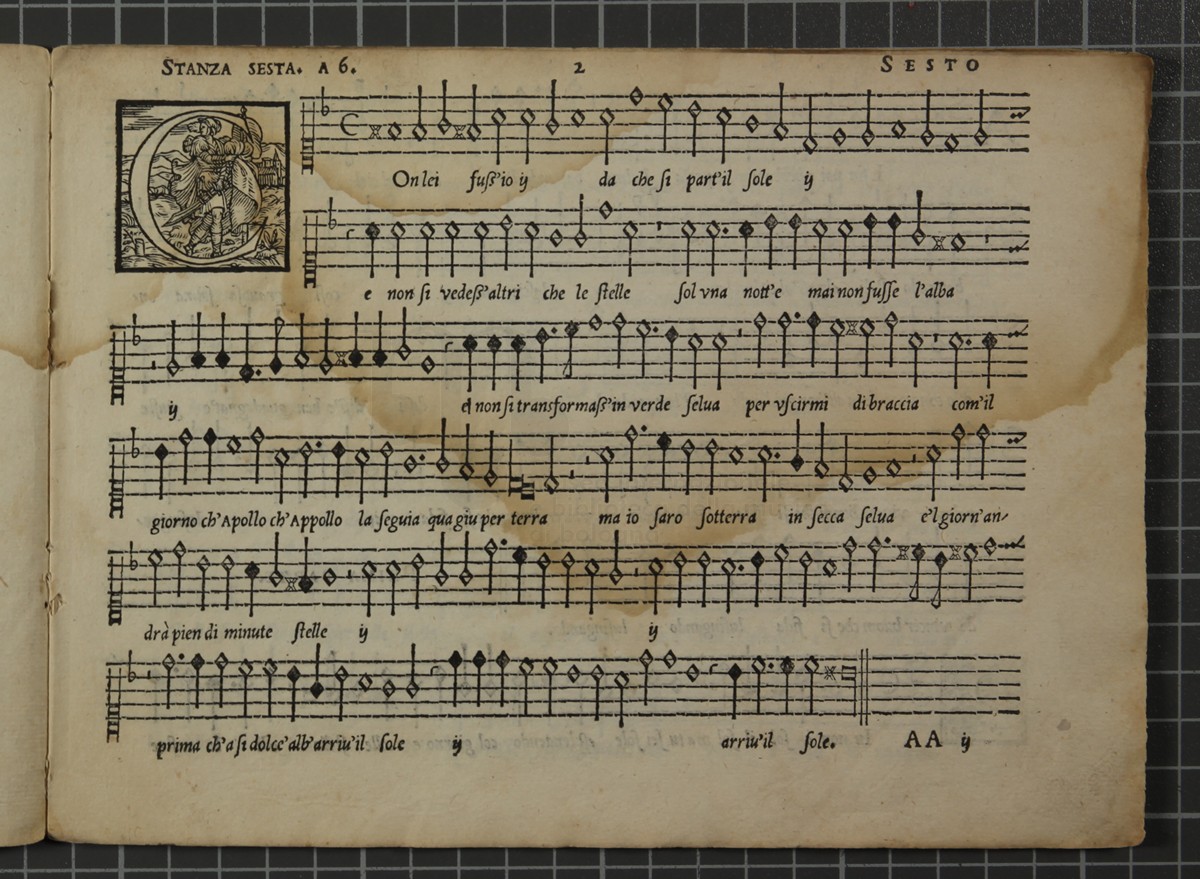 STANZA SESTA. A 6. 2 SESTO
COn lei fuſs'io ij da che ſi part'il ſole ij
e non ſi vedeſs'altri che le ſtelle ſol vna nott'e mai non fuſſe l'alba
ij e non ſi transformaſs'in verde ſelua per vſcirmi di braccia com'il
giorno ch'Apollo ch'Appollo la ſeguia qua giu per terra ma io ſaro ſotterra in ſecca ſelua e'l giorn'an-
drà pien di minute ſtelle ij ij
prima ch'a ſi dolce'alb'arriu'il ſole ij arriu'il ſole. AA ij